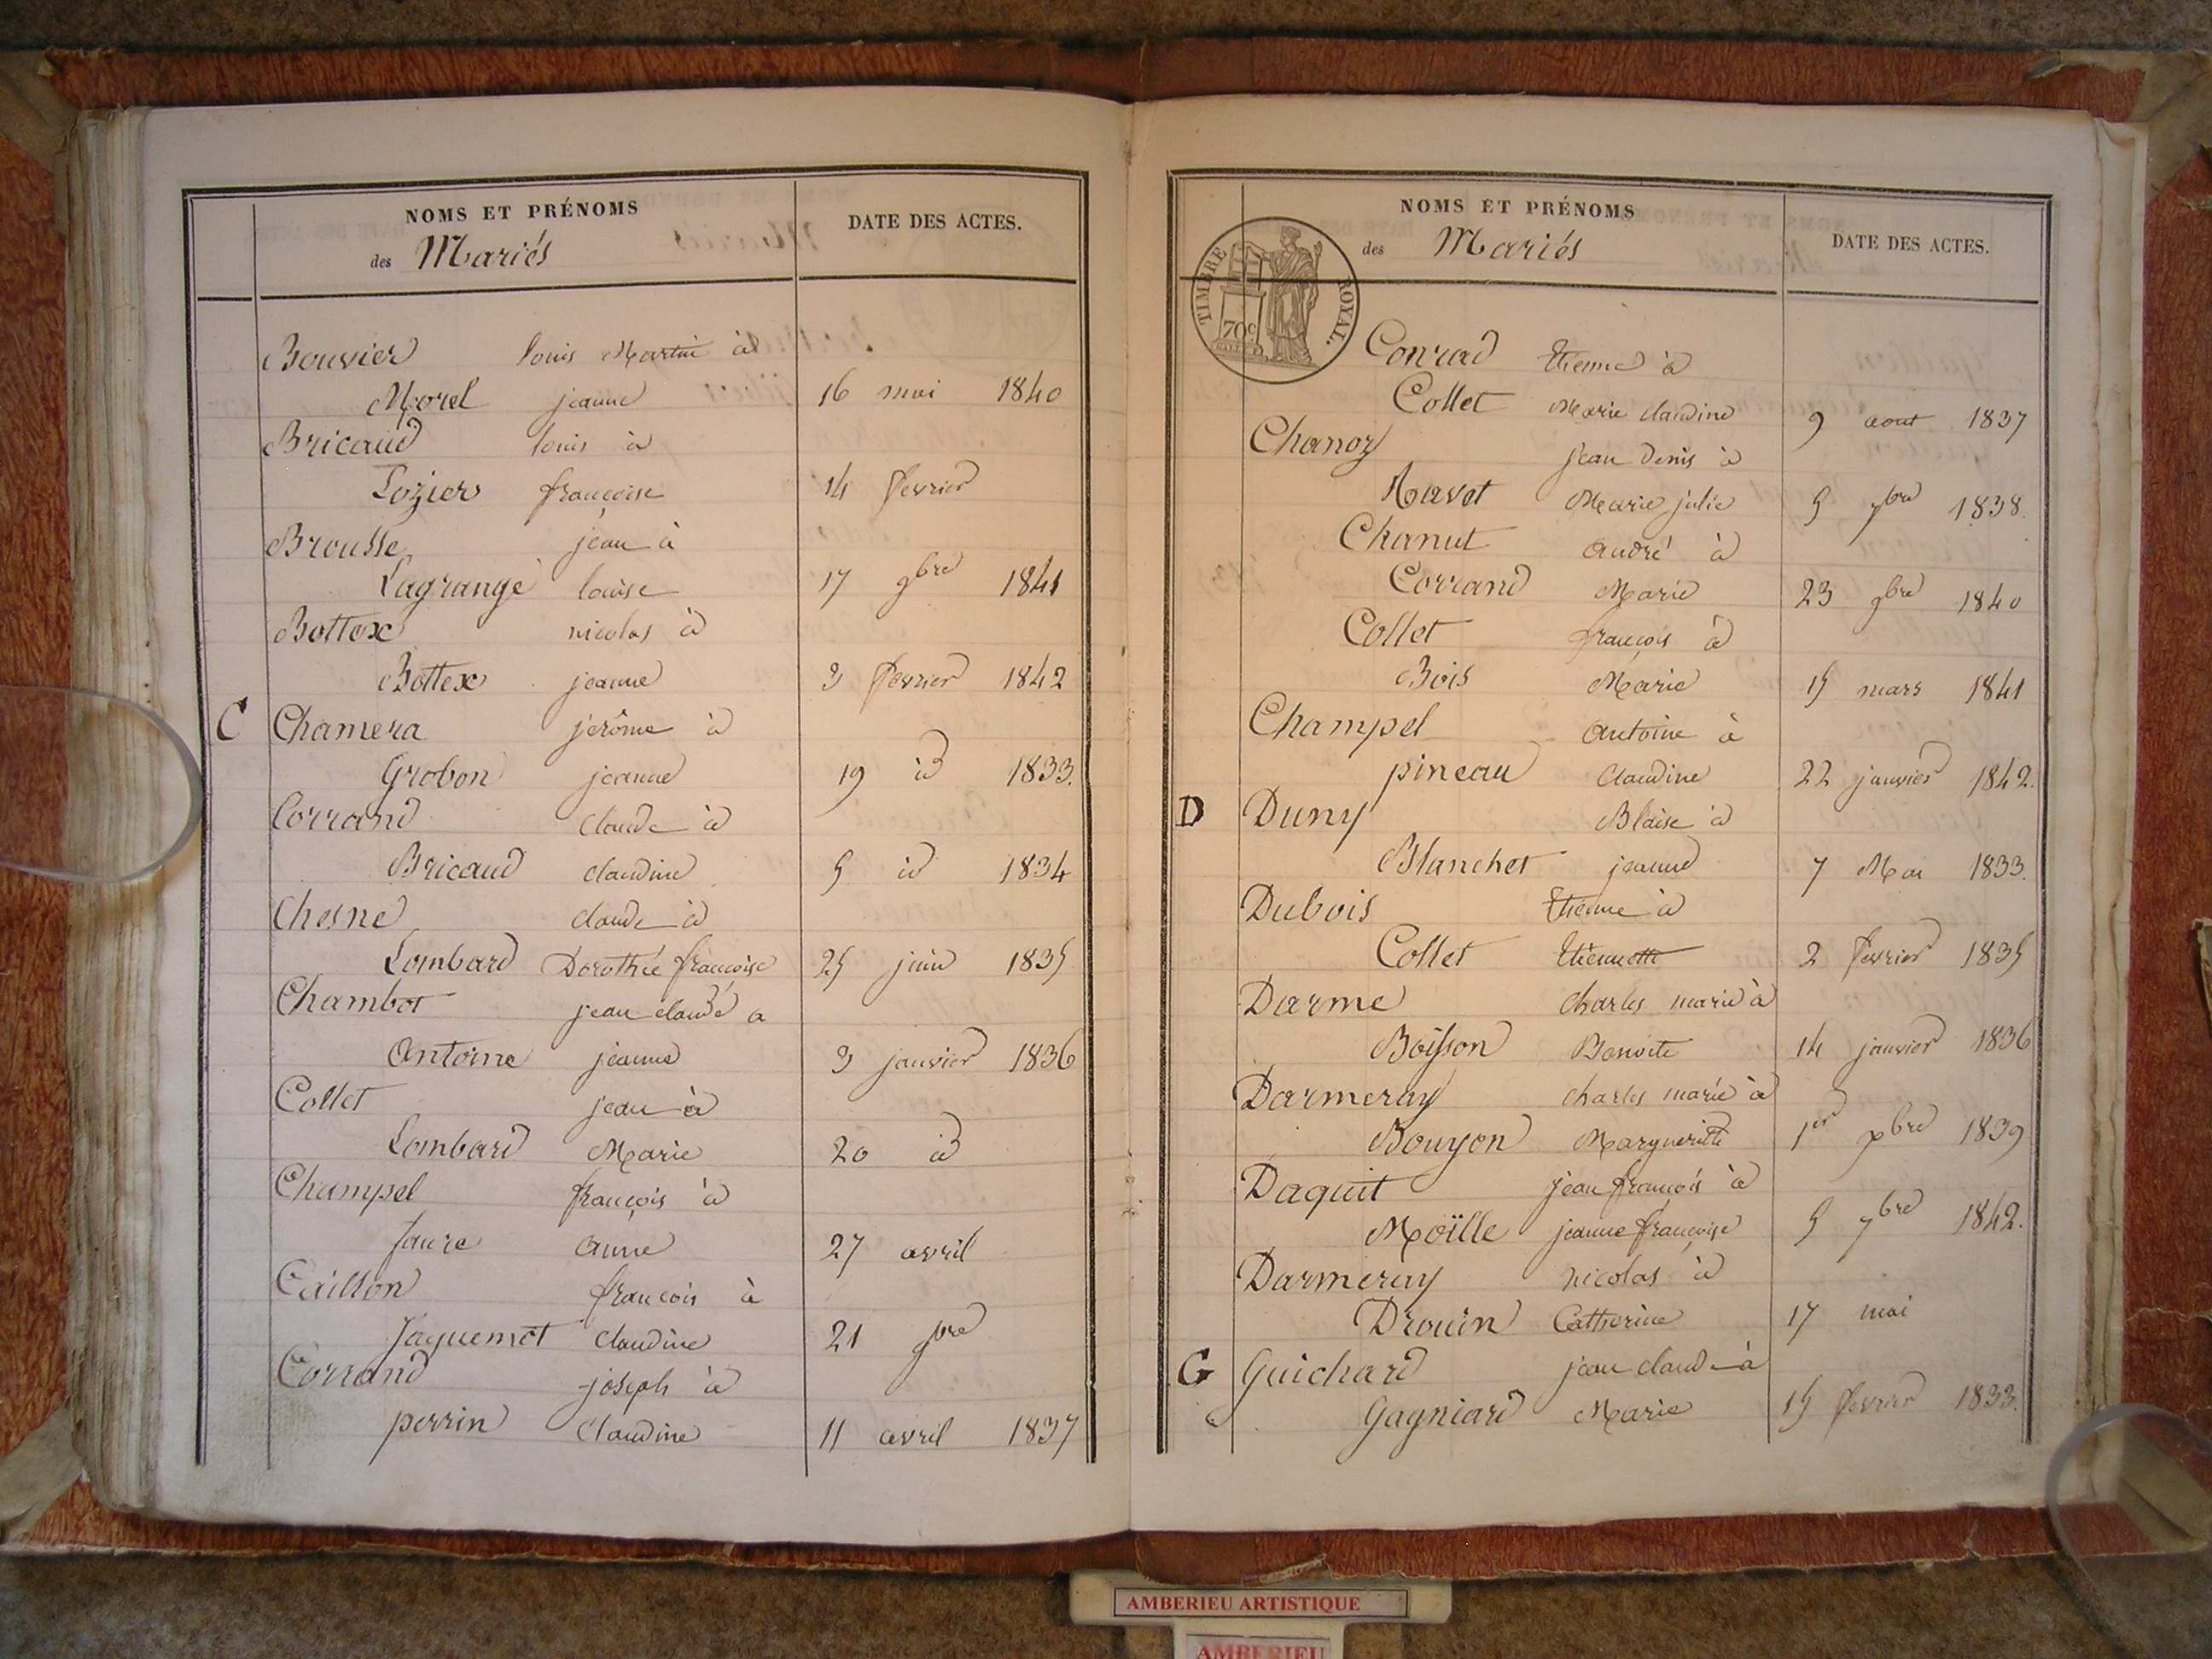 NOMS ET PRÉNOMS
des Mariés
DATE DES ACTES.
Bouvier louis Martin à
Morel jeanne 16 mai 1840
Bricaud louis à
Lozier françoise 14 fevrier
Brousse jean à
Lagrange louise 17 9bre 1841
Bottex nicolas à
Bottex jeanne 3 fevrier 1842
C Chamera jerôme à
Grobon jeanne 19 id 1833.
Corrand claude à
Bricaud claudine 5 id 1834
Chesne claude à
Lombard Dorothée françoise 25 juin 1835
Chambot jean claude a
Antoine jeanne 3 janvier 1836
Collet jean à
Lombard Marie 20 id
Champel françois à
faure anne 27 avril
Caillon francois à
Jaquemet claudine 21 9bre
Corrand joseph à
perrin Claudine 11 avril 1837
NOMS ET PRÉNOMS
des Mariés
DATE DES ACTES.
TIMBRE ROYAL.
70c
Conrad Etienne à
Collet Marie claudine 9 aout 1837
Chanoz jean Denis à
Ravet Marie julie 5 7bre 1838.
Chanut andré à
Corrand Marie 23 9bre 1840
Collet françois à
Bois Marie 15 mars 1841
Champel antoine à
pineau Claudine 22 janvier 1842.
D Duny Blaise à
Blanchet jeanne 7 Mai 1833.
Dubois Etienne à
Collet Etiennette 2 fevrier 1835
Darme charles marie à
Boisson Benoite 14 janvier 1836
Darmeray charles marie à
Bouyon Margueritte 1er xbre 1839
Daquit jean françois à
Moïlle jeanne françoise 5 7bre 1842.
Darmeray nicolas à
Drouin Catherine 17 mai
G Guichard jean claude à
Gagniard Marie 15 fevrier 1833.
AMBERIEU ARTISTIQUE
AMBERIEU